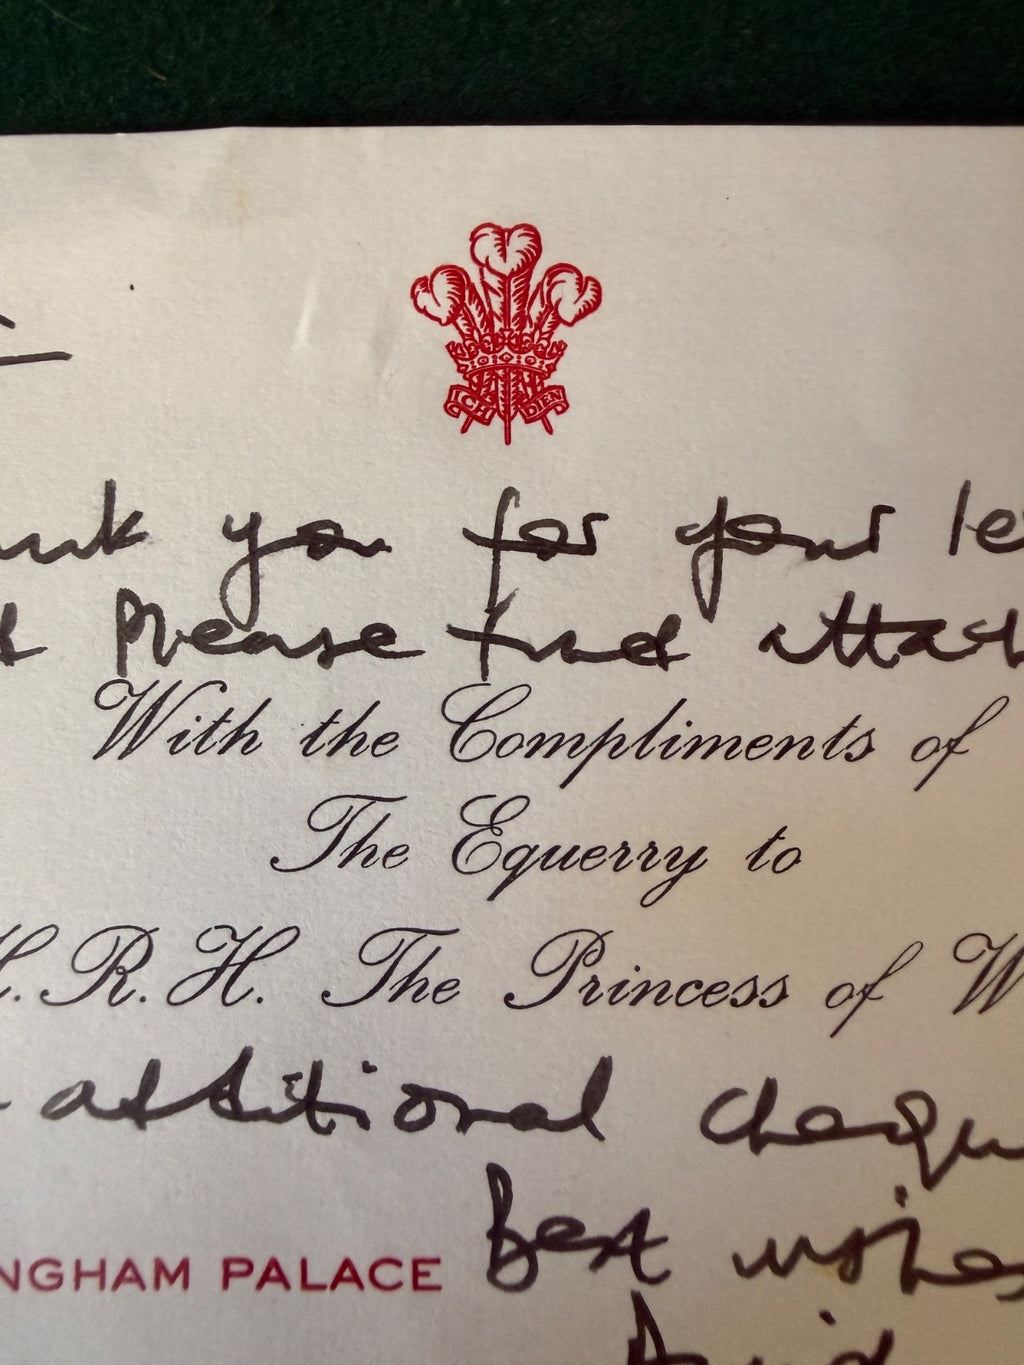 ICH DIEN
ank you for your le
d Please find attach
With the Compliments of
The Equerry to
H.R.H. The Princess of W
additional chequ
NGHAM PALACE
Best wishes
David